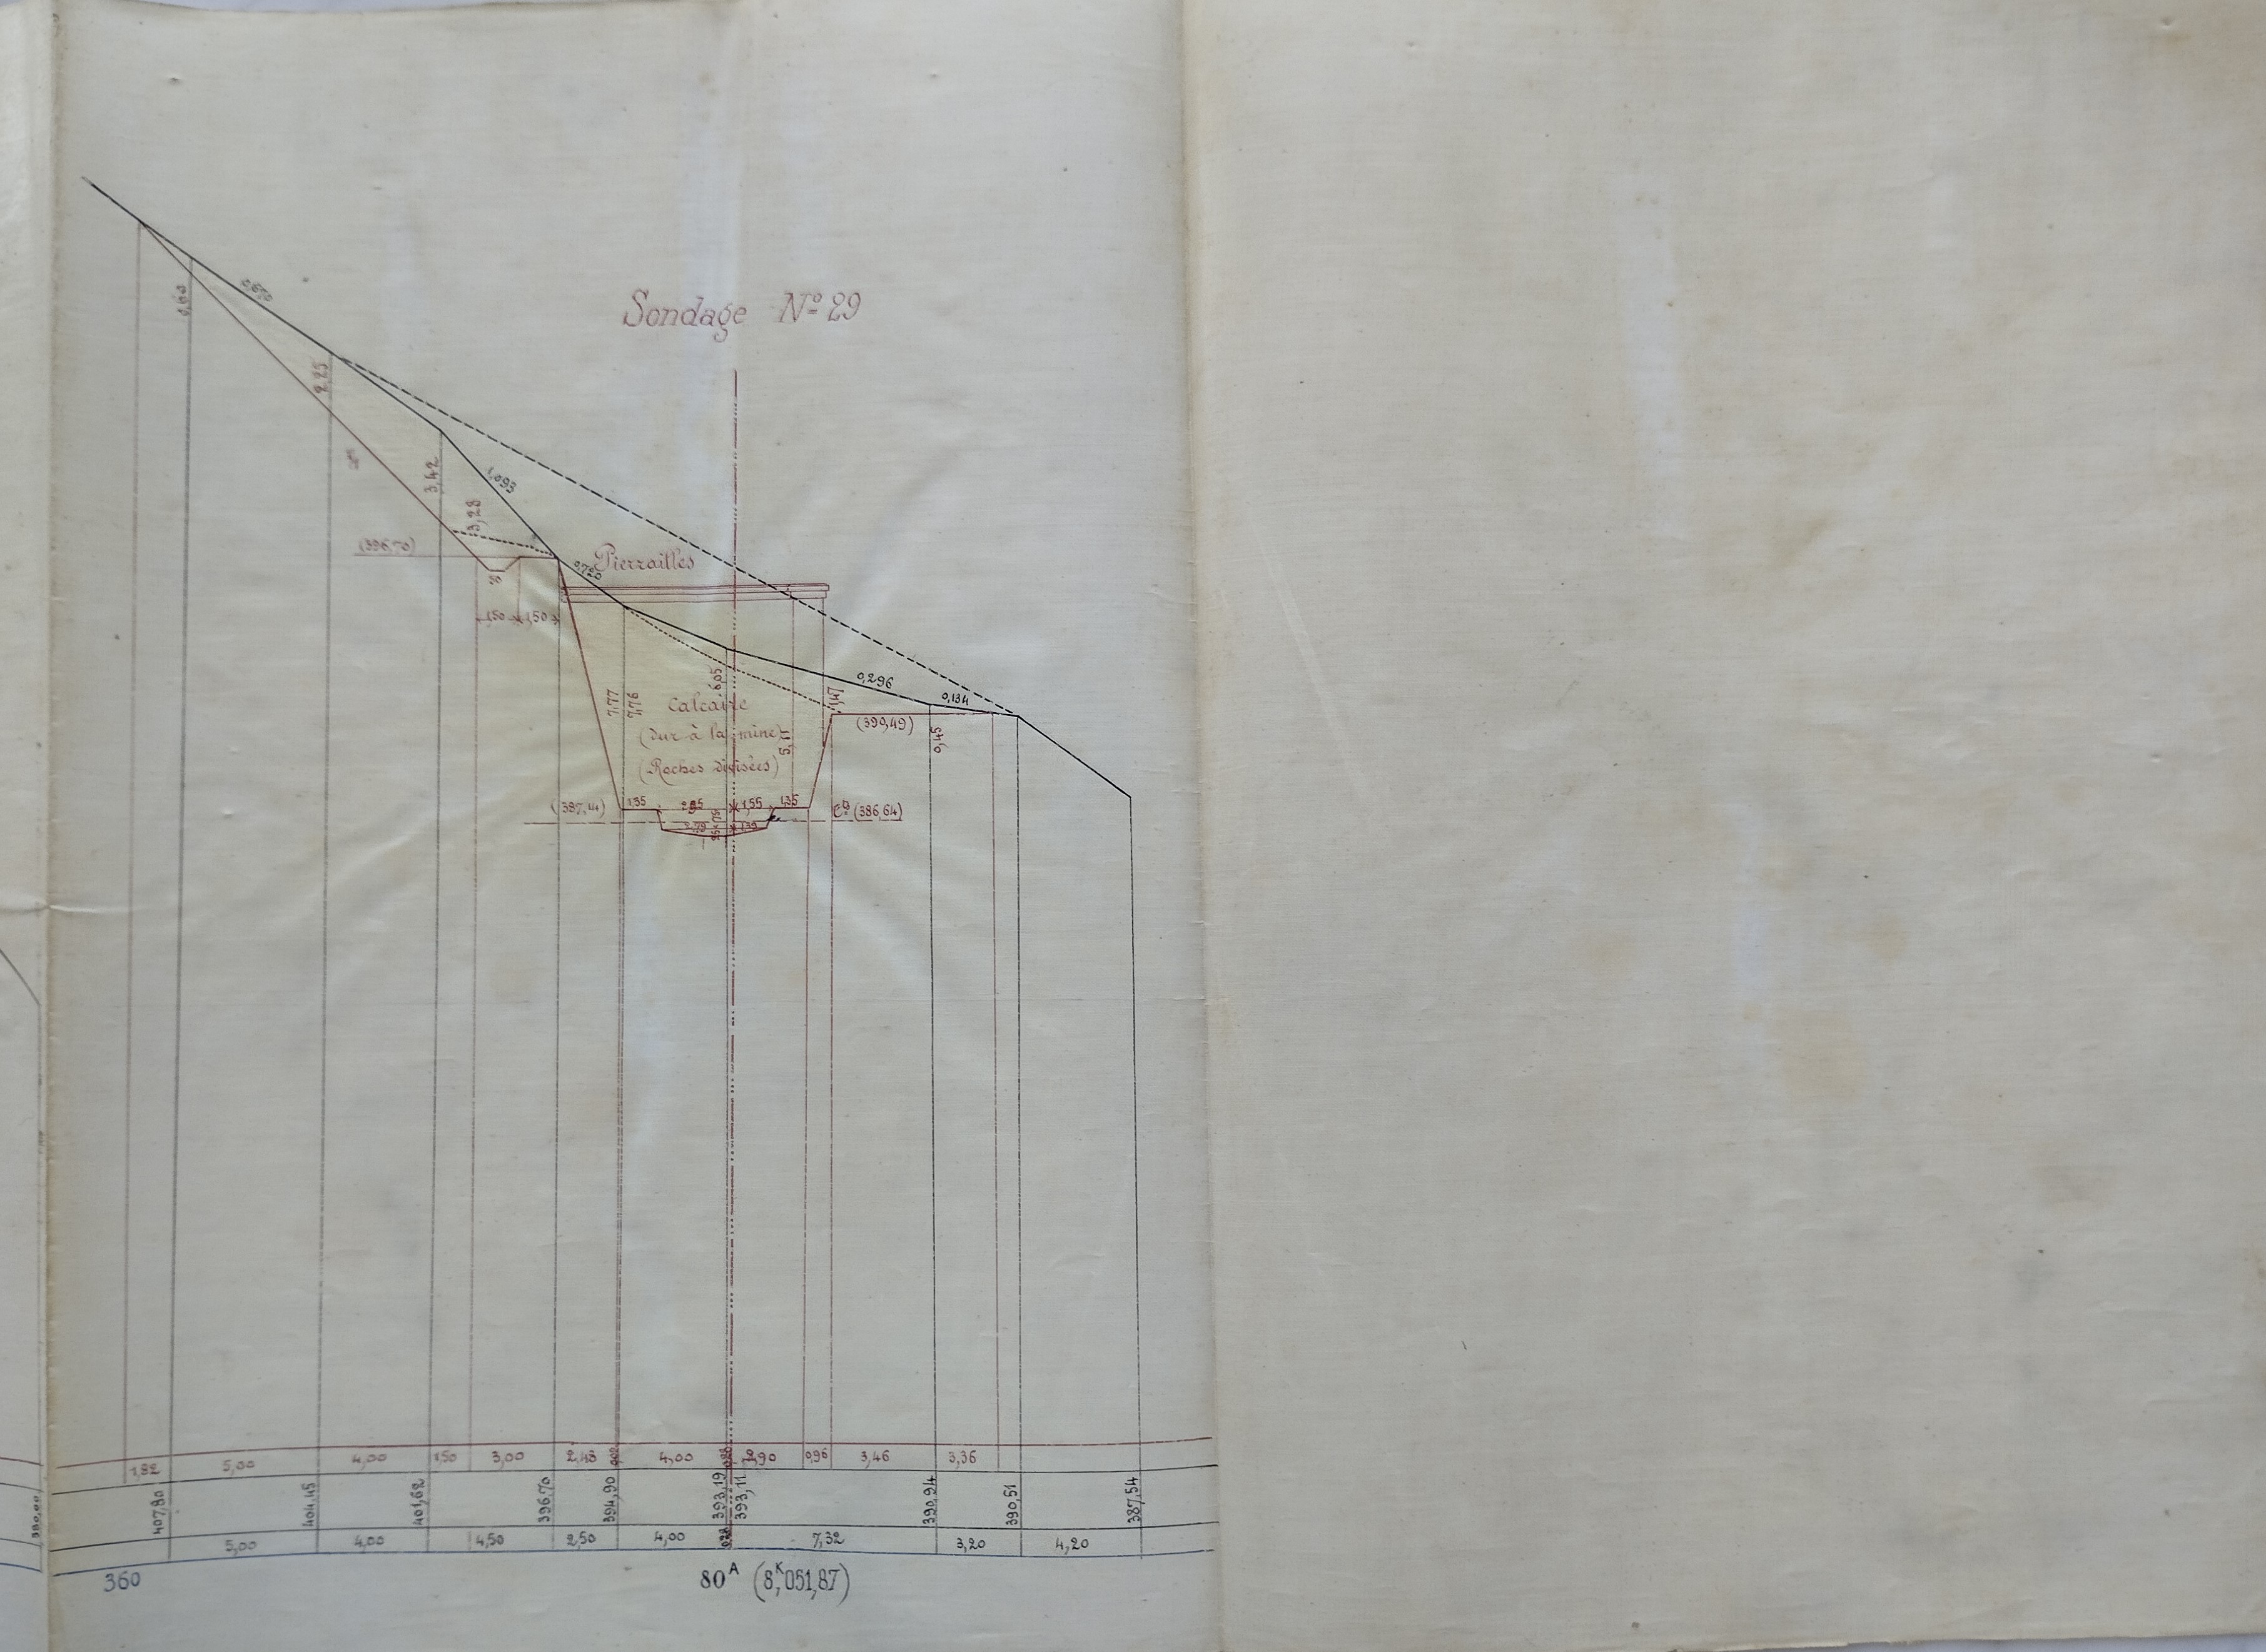 Sondage Nº 29
0,60
0,670
2,25
3,42
1,093
3,28
(396,70)
Pierrailles
0,720
1,50 1,50
7,77
7,76
6,05
Calcaire
(Dur à la mine)
5,11
(Roches divisées)
1,47
0,296
0,134
(390,49)
0,45
(387,44)
1,35 1,55 1,35
(386,64)
1,82 5,00 4,00 1,50 3,00 2,48 4,00 0,96 3,46 3,36
380,00 407,80 404,45 401,62 396,70 394,90 393,19 393,11 390,94 390,51 387,54
5,00 4,00 4,50 2,50 4,00 0,28 7,32 3,20 4,20
360
80A (8K,051,87)